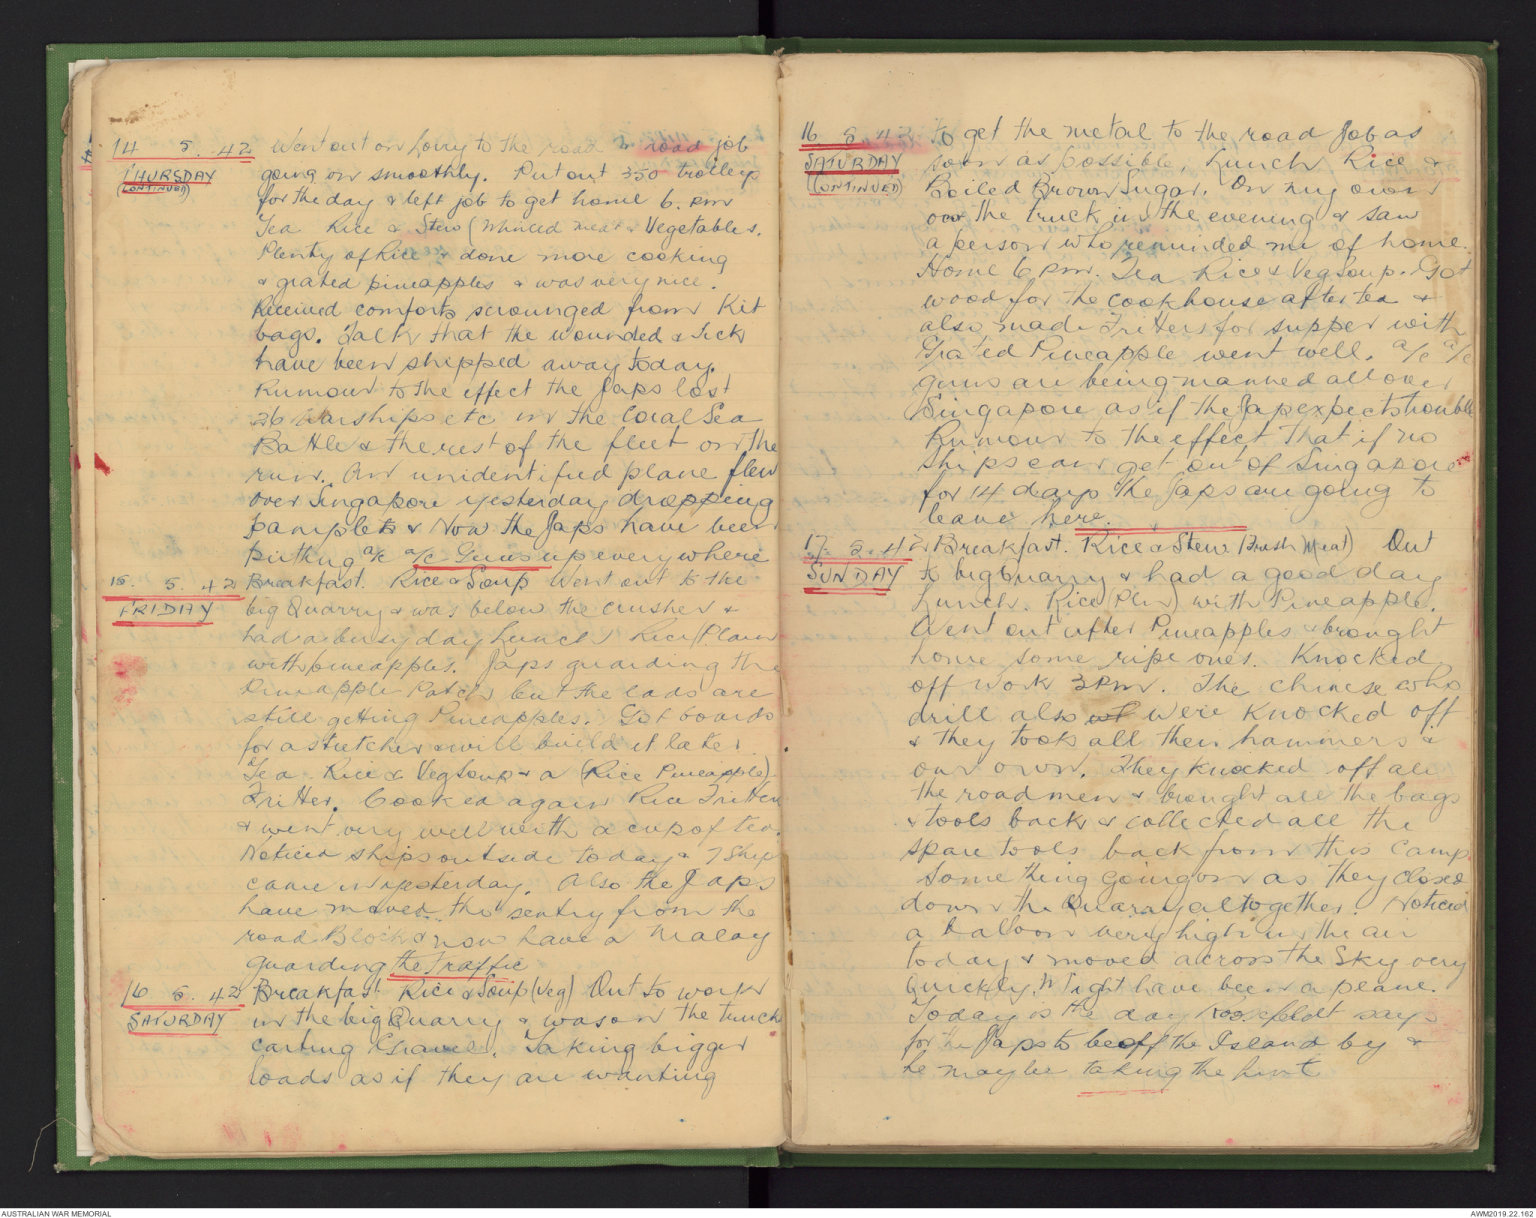 14 5. 42 Went out on Lorry to the road & road job
THURSDAY going on smoothly. Put out 350 trolleys
(CONTINUED) for the day & left job to get home 6. pm
Tea Rice & Stew (Minced meat & Vegetables.
Plenty of Rice & done more cooking
& grated pineapples & was very nice.
Received comforts scrounged from Kit
bags. Talk that the wounded & Sick
have been shipped away today.
Rumour to the effect the Japs lost
26 Warships etc in the Coral Sea
Battle & the rest of the fleet on the
run. An unidentified plane flew
over Singapore yesterday dropping
pamplets & Now the Japs have been
putting a/c a/c Guns up everywhere
15. 5. 42 Breakfast. Rice & Soup Went out to the
FRIDAY big Quarry & was below the crusher &
had a busy day Lunch Rice (Plain
with pineapples. Japs guarding the
Pineapple Patch but the lads are
still getting Pineapples. Got boards
for a stretcher & will build it later.
Tea. Rice & Veg Soup & a (Rice Pineapple)
Fritter. Cooked again Rice Fritters
& went very well with a cup of tea.
Noticed ships outside today & 7 Ships
came in yesterday. Also the Japs
have moved the sentry from the
road Block & now have a Malay
guarding the Traffic
16 5. 42 Breakfast Rice & Soup (Veg) Out to work
SATURDAY in the big Quarry & was on the truck
carting Gravel. Taking bigger
loads as if they are wanting
16 5 42 to get the metal to the road Job as
SATURDAY soon as possible, Lunch Rice &
(CONTINUED) Boiled Brown Sugar. On my own
on the truck in the evening & saw
a person who reminded me of home.
Home 6 pm. Tea Rice & Veg Soup. Got
wood for the cookhouse after tea &
also made Fritters for supper with
Grated Pineapple went well. a/c a/c
guns are being manned all over
Singapore as if the Jap expects trouble
Rumour to the effect that if no
ships can get out of Singapore
for 14 days the Japs are going to
leave here.
17. 5. 42 Breakfast. Rice & Stew (Fresh Meat) Out
SUNDAY to big Quarry & had a good day
Lunch. Rice (Plain) with Pineapple.
Went out after Pineapples & brought
home some ripe ones. Knocked
off work 3 Pm. The chinese who
drill also were Knocked off
& they took all their hammers &
our own. They knocked off all
the roadmen & brought all the bags
& tools back & collected all the
spare tools back from this Camp
Something going on as they closed
down the Quarry altogether. Noticed
a baloon very high in the air
today & moved across the Sky very
Quickly. Might have been a plane.
Today is the day Roosefeldt says
for the Japs to be off the Island by &
he may be taking the hint
AUSTRALIAN WAR MEMORIAL
AWM2019.22.162